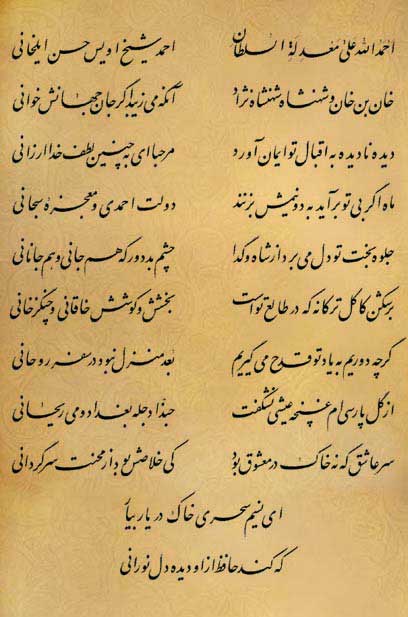 احمد الله علی معدلة السلطان احمد شیخ اویس حسن ایلخانی
خان بن خان و شهنشاه شهنشاه نژاد آنکه می زیبد اگر جان جهانش خوانی
دیده نادیده به اقبال تو ایمان آورد مرحبا ای به چنین لطف خدا ارزانی
ماه اگر بی تو برآید به دو نیمش بزنند دولت احمدی و معجزهٔ سبحانی
جلوه بخت تو دل می برد از شاه و گدا چشم بد دور که هم جانی و هم جانانی
برشکن کاکل ترکانه که در طالع تو است بخشش و کوشش خاقانی و چنگزخانی
گرچه دوریم به یاد تو قدح می گیریم بعد منزل نبود در سفر روحانی
از گل پارسی ام غنچه عیشی نشکفت حبذا دجله بغداد و می ریحانی
سر عاشق که نه خاک در معشوق بود کی خلاصش بود از محنت سرگردانی
ای نسیم سحری خاک در یار بیار
که کند حافظ از او دیده دل نورانی